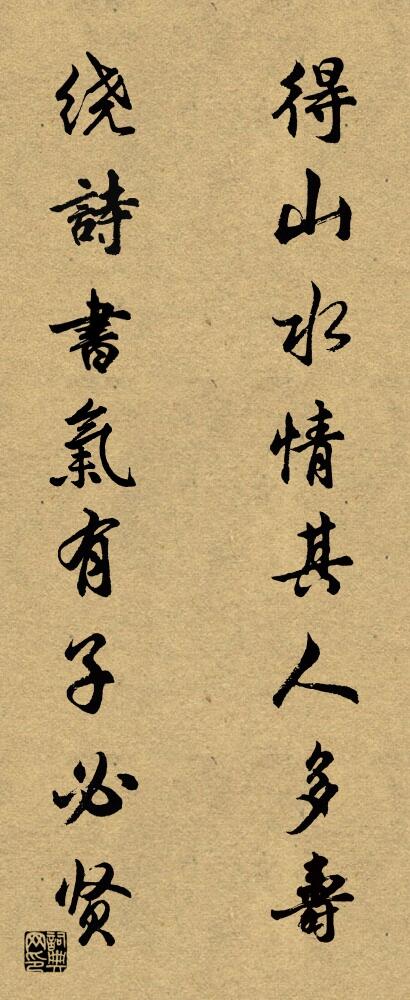 得山水情其人多壽
绕詩書氣有子必贤
詞典網印